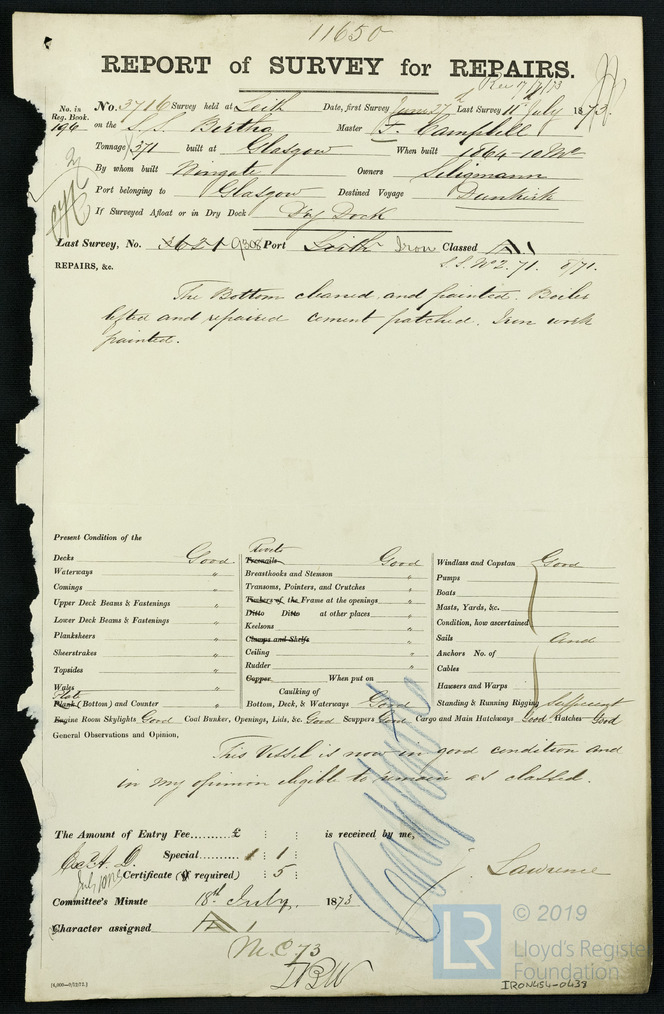 11650
REPORT of SURVEY for REPAIRS.
Rec 17/7/73
No. in Reg. Book. No. 3716 Survey held at Leith Date, first Survey June 27th Last Survey 11th July 1873.
196 on the S.S. Bertha Master F. Campbell
Tonnage 371 built at Glasgow When built 1864-10 Mo
By whom built Wingate Owners Seligmann
Port belonging to Glasgow Destined Voyage Dunkirk
If Surveyed Afloat or in Dry Dock Dry Dock
Last Survey, No. 3621 9308 Port Leith Iron Classed A 1
S.S. No 2. 71. 8/71.
REPAIRS, &c.
The Bottom cleaned and painted. Boiler
lifted and repaired cement patched. Iron work
painted.
Present Condition of the
Decks Good Rivets Treenails Good Windlass and Capstan Good
Waterways " Breasthooks and Stemson " Pumps
Comings " Transoms, Pointers, and Crutches " Boats
Upper Deck Beams & Fastenings " Timbers of the Frame at the openings " Masts, Yards, &c.
Lower Deck Beams & Fastenings " Ditto Ditto at other places " Condition, how ascertained
Planksheers " Keelsons " Sails And
Sheerstrakes " Clamps and Shelfs Anchors No. of
Topsides " Ceiling " Cables
Wales " Rudder " Hawsers and Warps
Plate Plank (Bottom) and Counter " Copper When put on
Caulking of
Bottom, Deck, & Waterways Good Standing & Running Rigging Sufficient
Engine Room Skylights Good Coal Bunker, Openings, Lids, &c. Good Scuppers Good Cargo and Main Hatchways Good Hatches Good
General Observations and Opinion,
This Vessel is now in good condition and
in my opinion eligible to remain as classed.
The Amount of Entry Fee......... £ : : is received by me,
Special......... 1 : 1 :
Certificate (if required) : 5 : J. Lawrence
Committee's Minute 18th July, 1873
Character assigned A 1
M.C. 73
[6,000—9/12/72.]
© 2019
LR
Lloyd's Register
Foundation
IRON454-0439